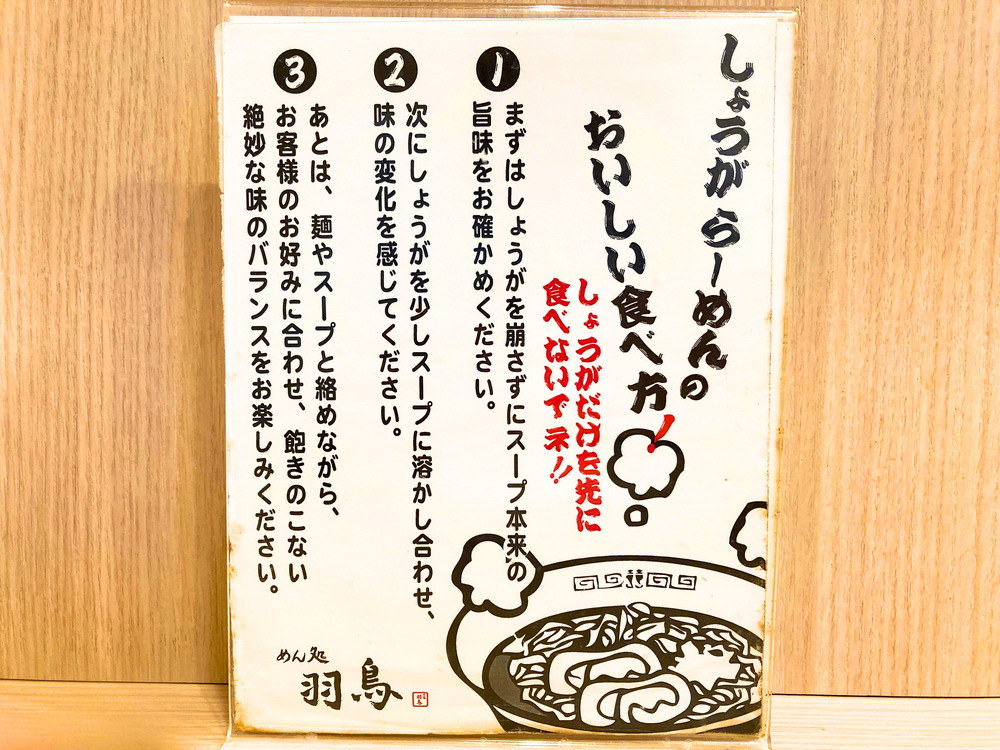 しょうがらーめんの
おいしい食べ方!
しょうがだけを先に
食べないでネ!!
1
まずはしょうがを崩さずにスープ本来の
旨味をお確かめください。
2
次にしょうがを少しスープに溶かし合わせ、
味の変化を感じてください。
3
あとは、麺やスープと絡めながら、
お客様のお好みに合わせ、飽きのこない
絶妙な味のバランスをお楽しみください。
めん処
羽鳥